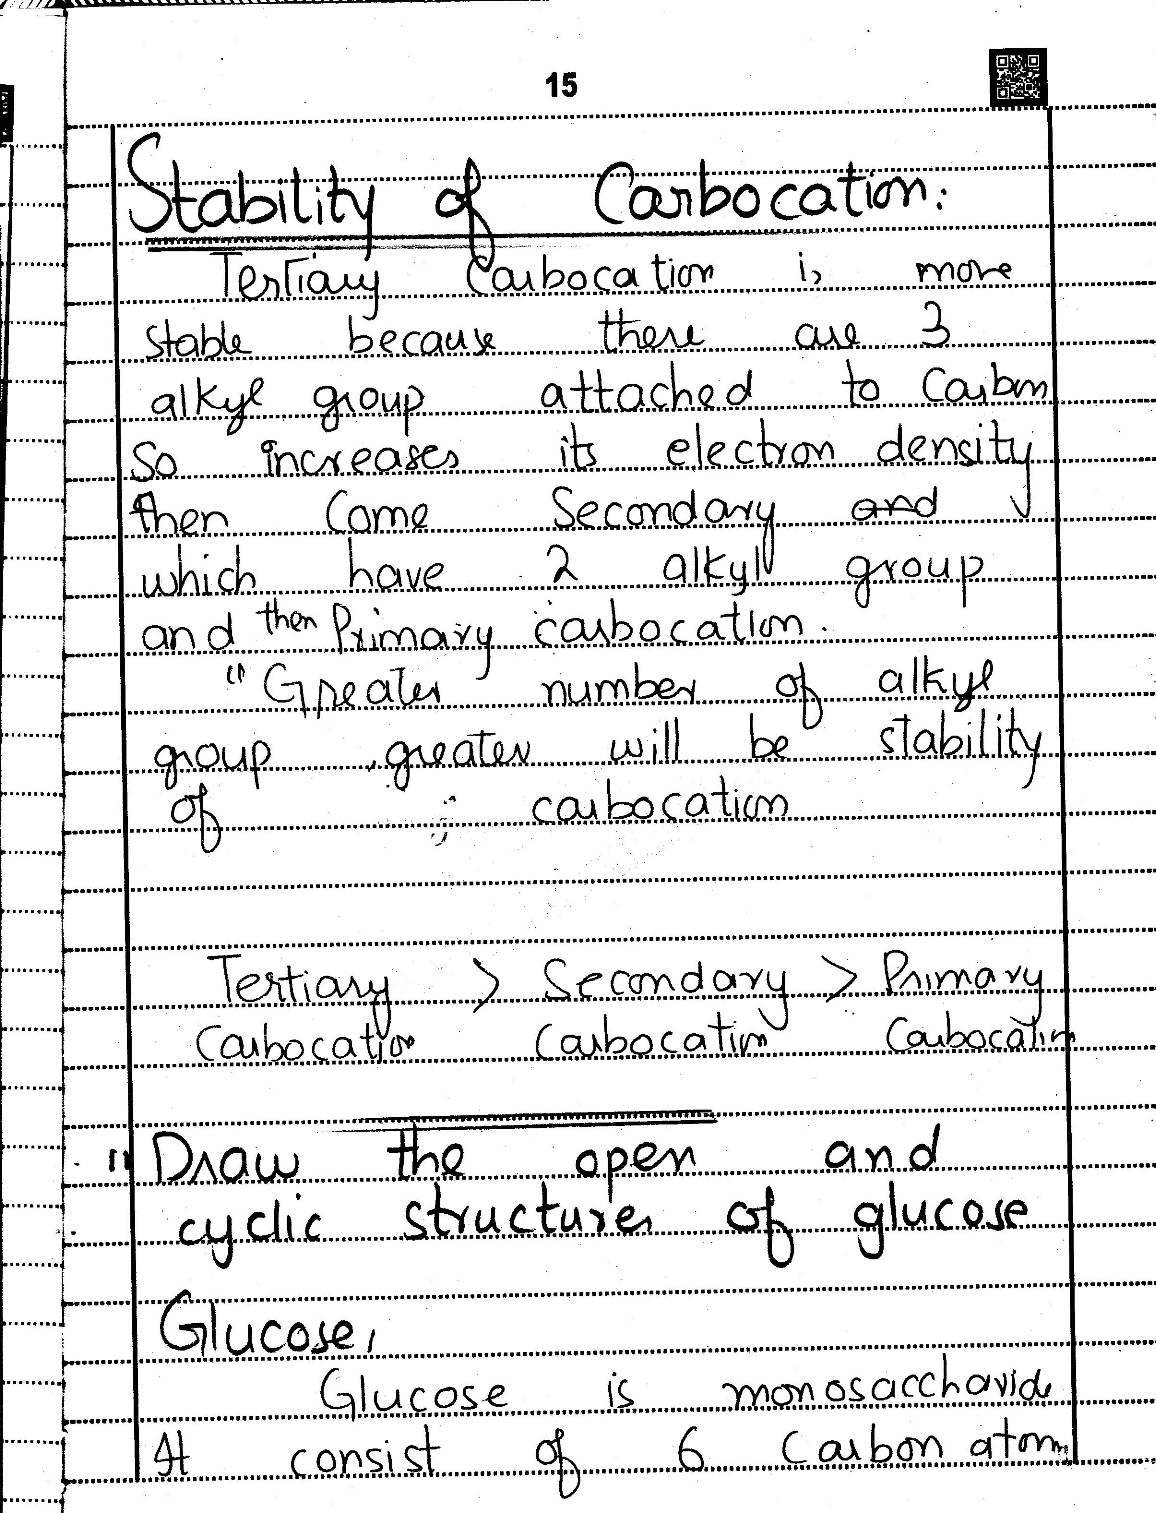 15
Stability of Carbocation:
Tertiary Carbocation is more
stable because there are 3
alkyl group attached to Carbon
So increases its electron density
then Come Secondary and
which have 2 alkyl group
and then Primary carbocation.
"Greater number of alkyl
group, greater will be stability
of carbocation
Tertiary > Secondary > Primary
Carbocation Carbocation Carbocation
Draw the open and
cyclic structures of glucose
Glucose,
Glucose is monosaccharide
It consist of 6 Carbon atom